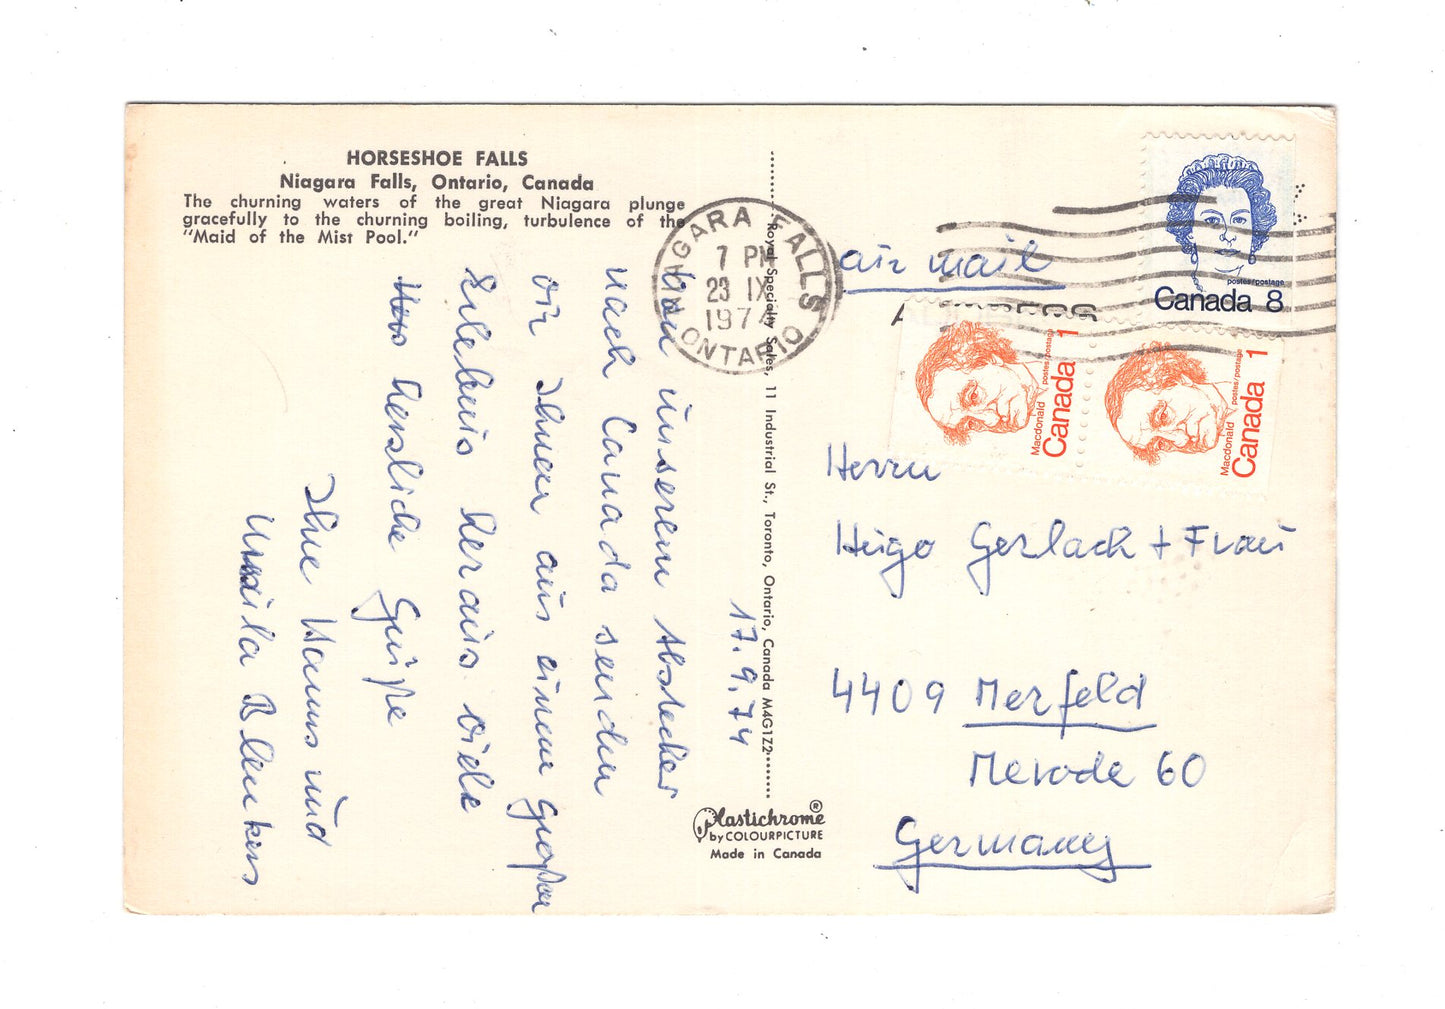 HORSESHOE FALLS
Niagara Falls, Ontario, Canada
The churning waters of the great Niagara plunge
gracefully to the churning boiling, turbulence of the
"Maid of the Mist Pool."
17.9.74
Von unserem Abstecher
nach Canada senden
wir Ihnen aus einem großen
Erlebnis heraus viele
herzliche Grüße
Ihre Hanns und
Ursula
Royal Specialty Sales, 11 Industrial St., Toronto, Ontario, Canada M4G1Z2
Plastichrome ®
by COLOURPICTURE
Made in Canada
NIAGARA FALLS
7 PM
23 IX
1974
ONTARIO
air mail
postes/postage
Canada 8
Macdonald
postes/postage
Canada 1
Macdonald
postes/postage
Canada 1
Herrn
Hugo Gerlach + Frau
4409 Merfeld
Merode 60
Germany